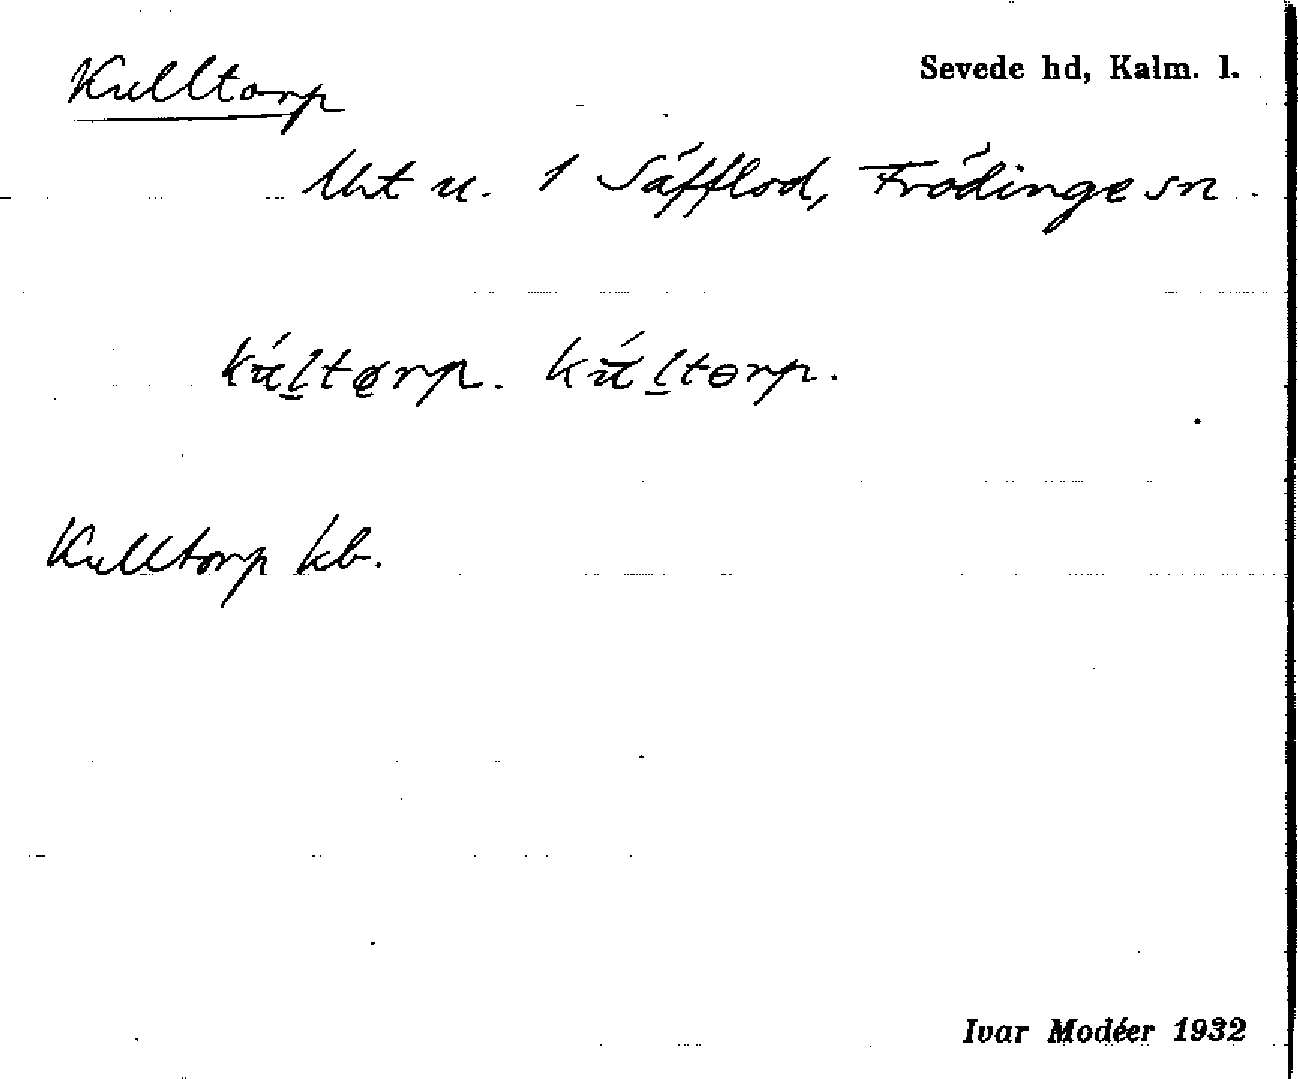 Kulltorp
Sevede hd, Kalm. l.
Ut u. 1 Säfflod, Frödinge sn
Kulltorp kb.
Ivar Modéer 1932